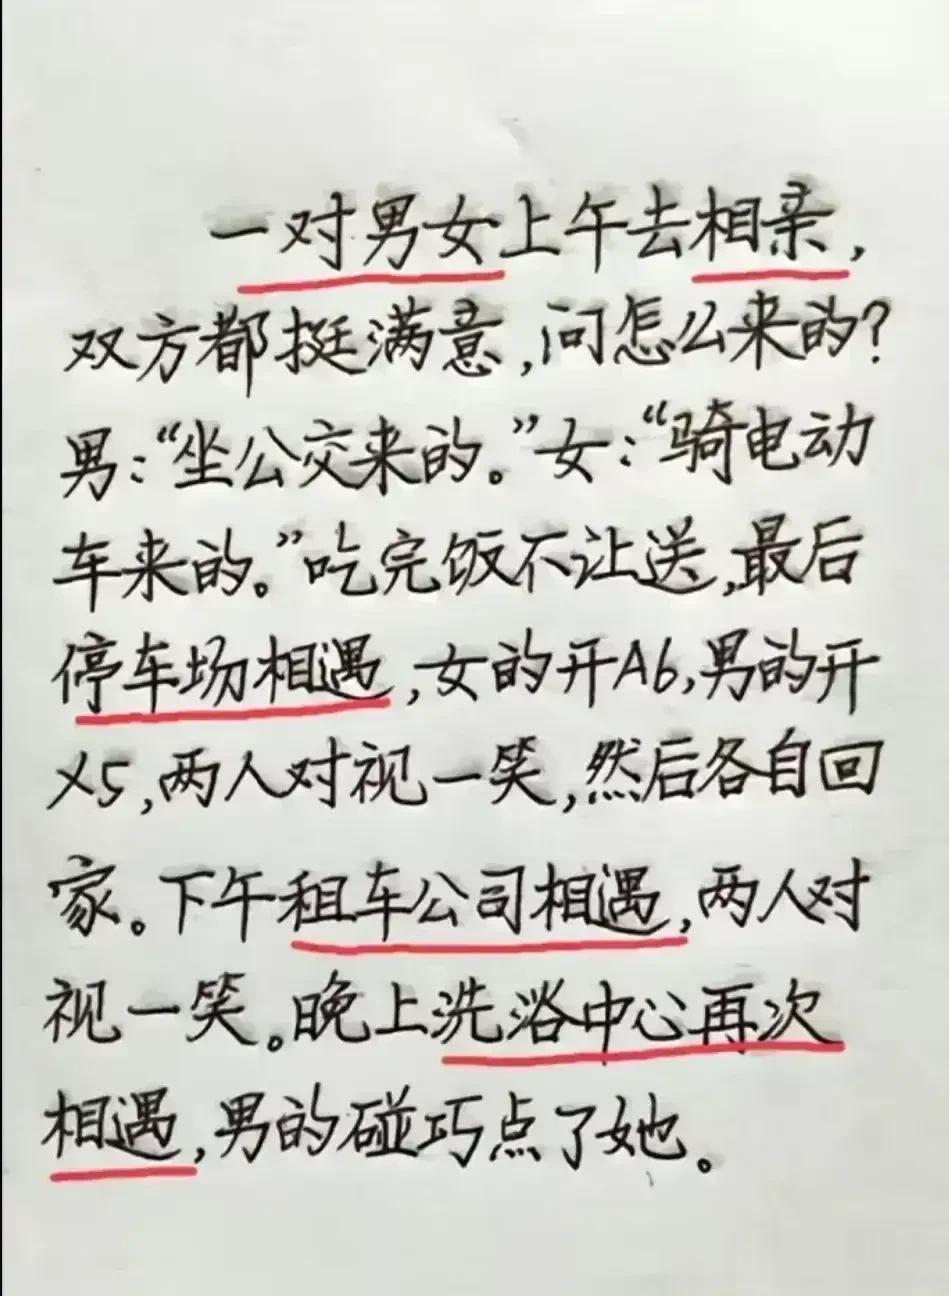 一对男女上午去相亲，
双方都挺满意，问怎么来的？
男：“坐公交来的。”女：“骑电动
车来的。”吃完饭不让送，最后
停车场相遇，女的开A6，男的开
X5，两人对视一笑，然后各自回
家。下午租车公司相遇，两人对
视一笑。晚上洗浴中心再次
相遇，男的碰巧点了她。